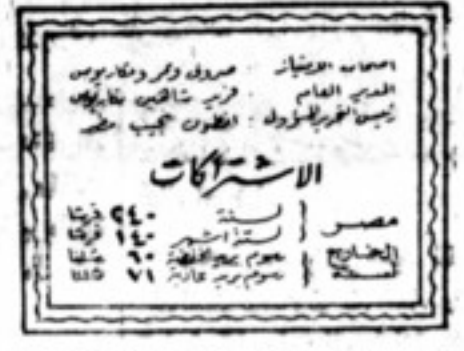 اصحاب الامتياز : صروف ونمر ومكاريوس
المدير العام : فريد شاهين مكاريوس
رئيس التحرير المسؤول : انطون نجيب مطر
الاشتراكات
مصر { لسنة ٢٤٠ قرشا
لستة اشهر ١٤٠ قرشا
الخارج لسنة { رسوم بريد ٦٠ شلنا
رسوم بريد ٧١ شلنا